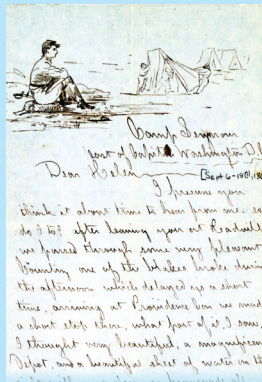 Camp Seymour
east of Capitol Washington D.C.
[Sept 6-1861,
Dear Helen
I presume you
think it about time to hear from me. so
do I too after leaving you at Readville
we passed through some very pleasant
Country one of the brakes broke during
the afternoon which delayed us a short
time, arriving at Providence Con we made
a short stop there, what part of it, I saw,
I thought very beautiful, a magnificent
Depot, and a beautiful sheet of water on the